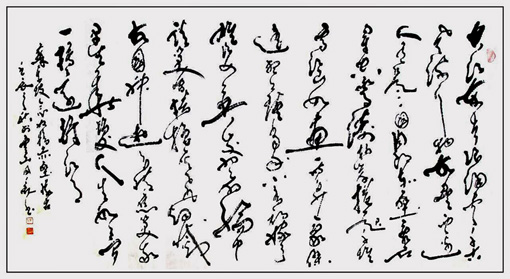 大江东去浪淘尽千古
风流人物故垒西边
人道是三国周郎赤壁乱石
穿空惊涛拍岸卷起千堆
雪江山如画一时多少豪杰
遥想公瑾当年小乔初嫁了
雄姿英发羽扇纶巾
谈笑间樯橹灰飞烟灭
故国神游多情应笑我
早生华发人生如梦
一樽还酹江月
苏东坡念奴娇赤壁怀古